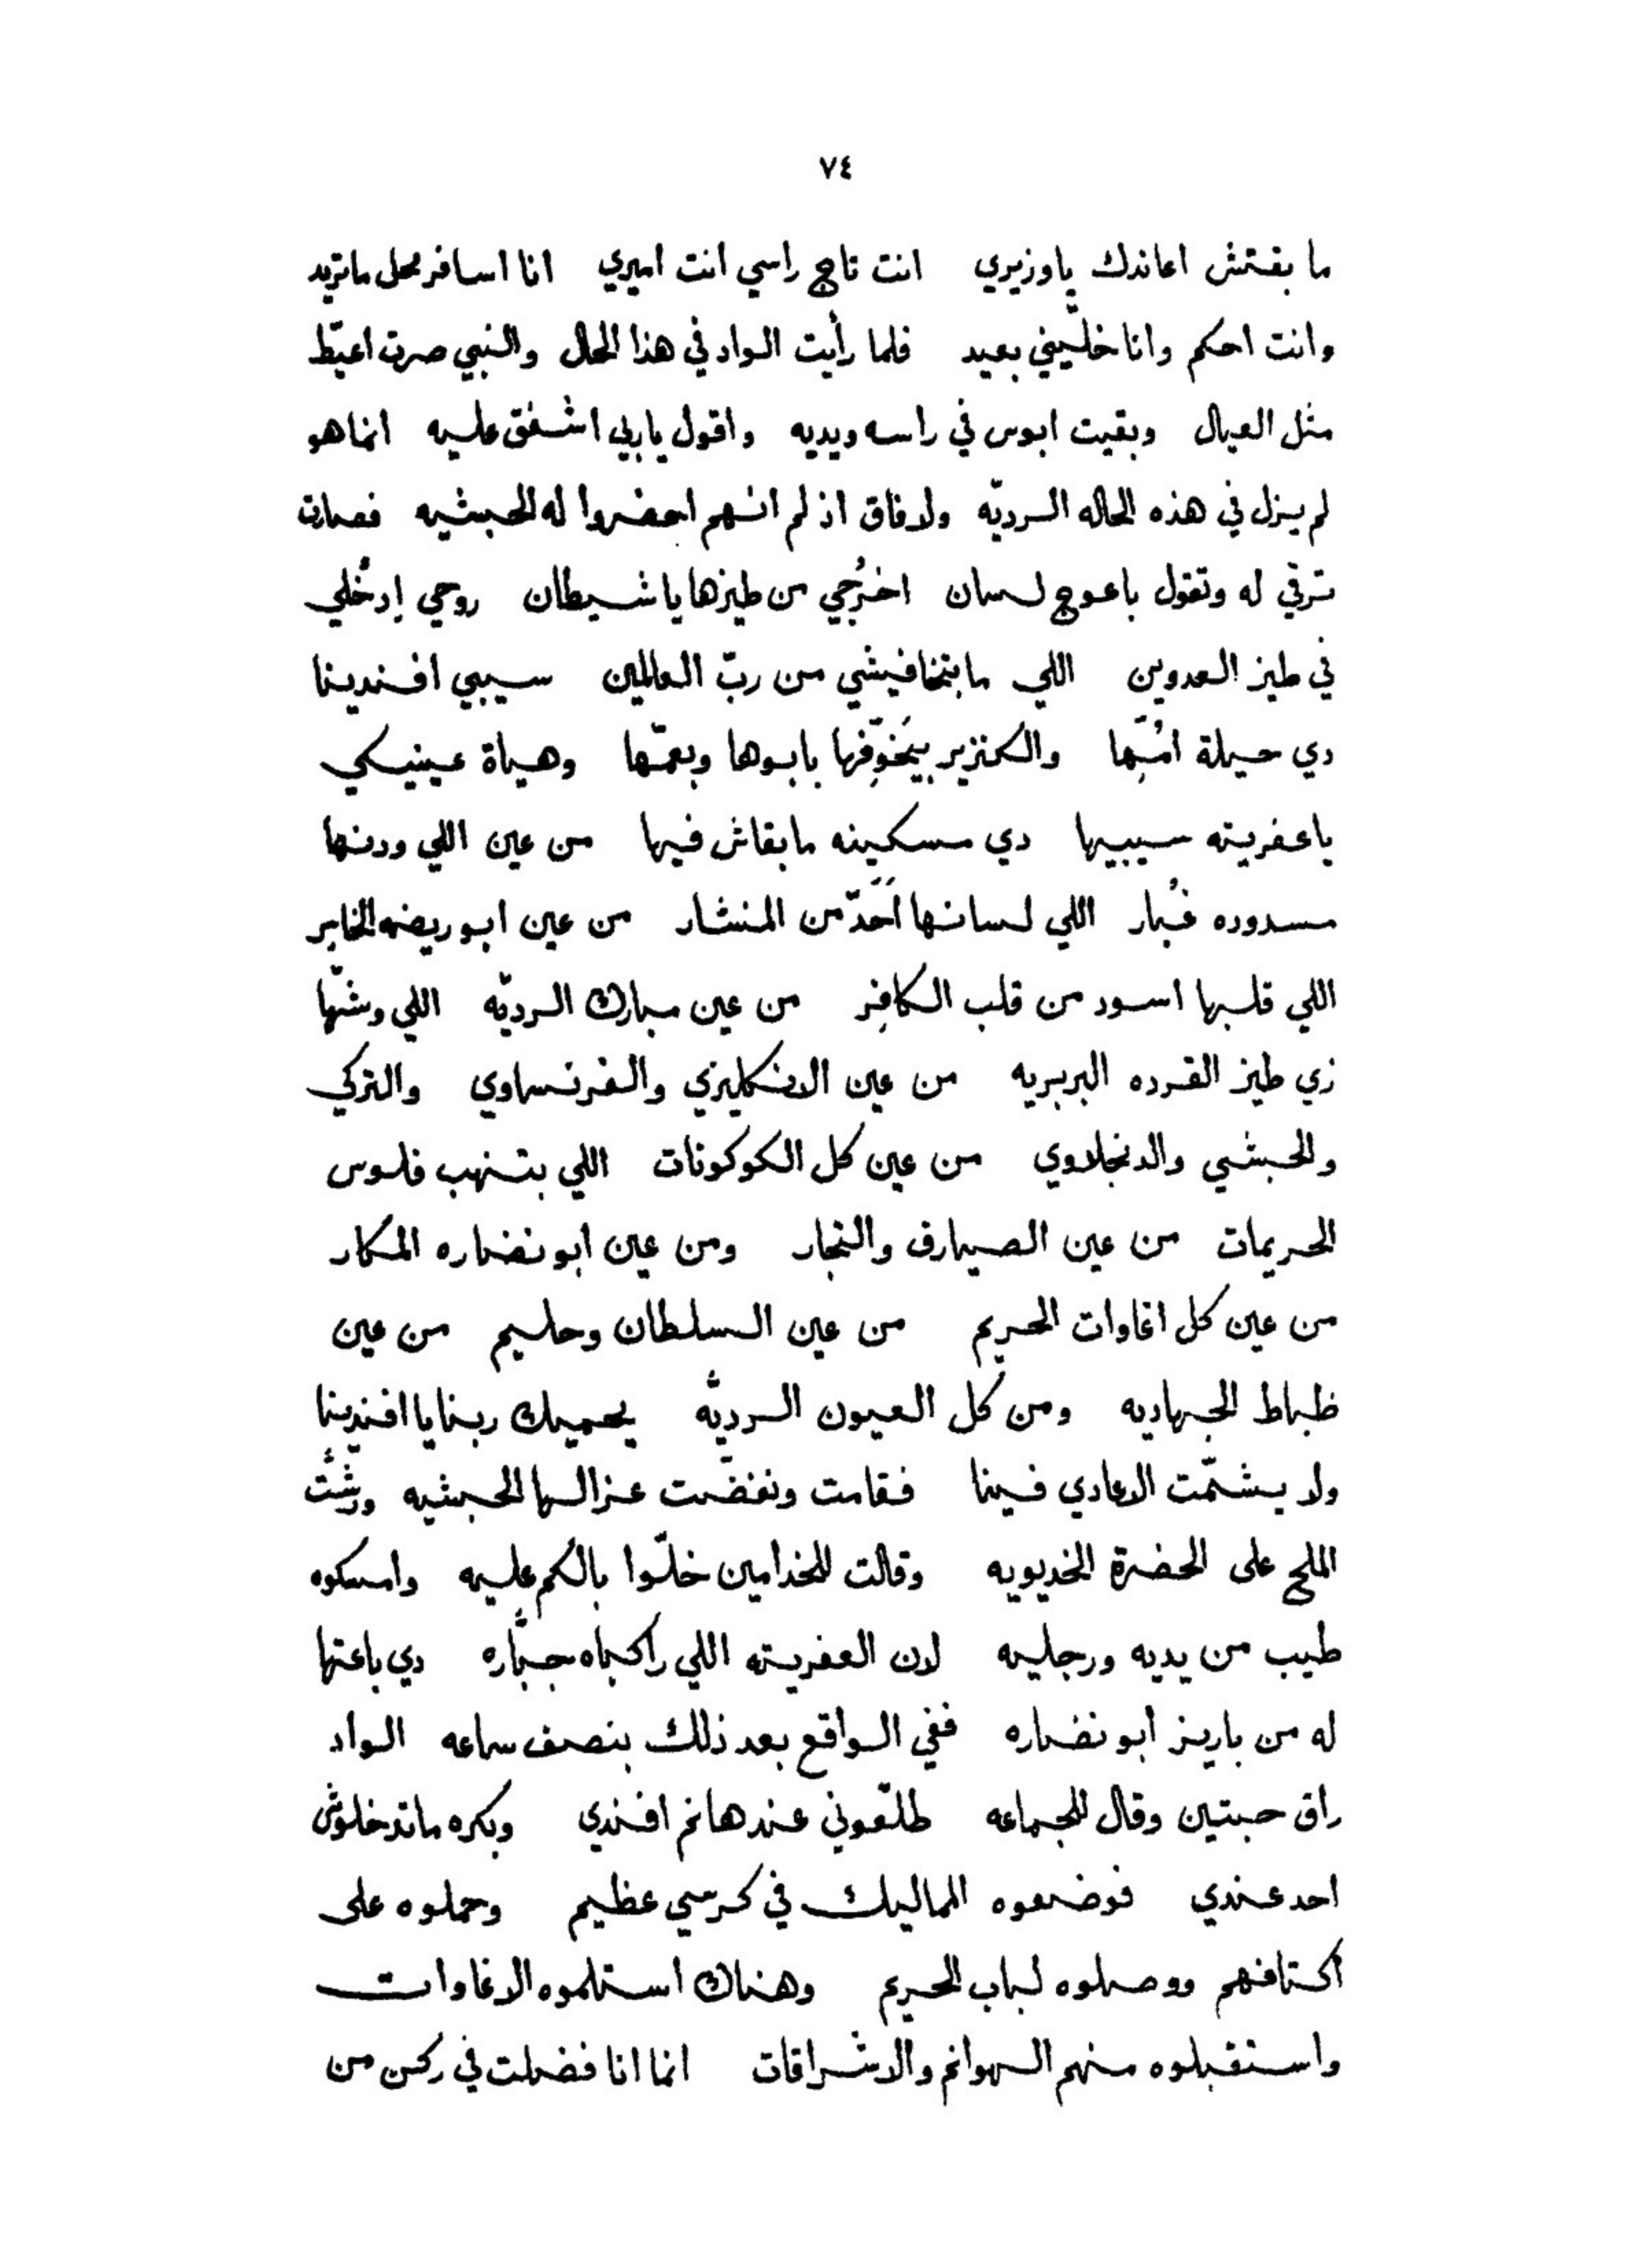 ٧٤
ما بقتش اعاندك ياوزيري انت تاج راسي انت اميري انا اسافر محل ماتريد
وانت احكم وانا خلّيني بعيد فلما رأيت الواد في هذا الحال والنبي صرت اعيّط
مثل العيال وبقيت ابوس في راسه ويديه واقول ياربي اشفق عليه انما هو
لم يزل في هذه الحاله الرديّه ولا فاق اذ لم انهم احضروا له الحبشيه فصارت
ترقي له وتقول باعوج لسان اخرُجي من طيزها ياشيطان روحي إدخُلي
في طيز العدوين اللي مابتخافيشي من ربّ العالمين سيبي افندينا
دي حيلة امُّها والكنزير بيَخوِّفها بابوها وبعمّها وحياة عينيكي
ياعفريته سيبيها دي مسكينه مابقاش فيها من عين اللي ودنها
مسدوده غُبار اللي لسانها اَحَدّ من المنشار من عين ابو ريضه الخابر
اللي قلبها اسود من قلب الكافِر من عين مبارك الرديّه اللي وشّها
زي طيز القرده البربريه من عين الانكليزي والفرنساوي والتركي
والحبشي والدنجلاوي من عين كل الكوكونات اللي بتنهب فلوس
الحريمات من عين الصيارف والتجار ومن عين ابو نضاره المكار
من عين كل اغاوات الحريم من عين السلطان وحليم من عين
ظباط الجهاديه ومن كل العيون الرديّه يحميك ربنا يا افندينا
ولا يشمّت الاعادي فينا فقامت ونفضت عزالها الحبشيه ورشَّت
الملح على الحضرة الخديويه وقالت للخدامين خلّوا بالكم عليه وامسكوه
طيب من يديه ورجليه لان العفريته اللي راكباه جبّاره دي باعتها
له من باريز أبو نضاره ففي الواقع بعد ذلك بنصف ساعه الواد
راق حبتين وقال للجماعه طلّعوني عند هانم افندي وبكره ماتدخلوش
احد عندي فوضعوه المماليك في كرسي عظيم وحملوه على
أكتافهم ووصلوه لباب الحريم وهناك استلموه الاغاوات
واستقبلوه منهم الهوانم والاشراقات انما انا فضلت في ركن من